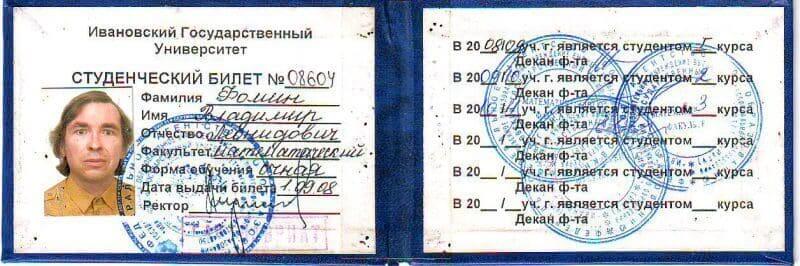 Ивановский Государственный
Университет
СТУДЕНЧЕСКИЙ БИЛЕТ № 08604
Фамилия Фомин
Имя Владимир
Отчество Леонидович
Факультет математический
Форма обучения очная
Дата выдачи билета 1.09.08
Ректор
В 2008/09 уч. г. является студентом I курса
Декан ф-та
В 2009/10 уч. г. является студентом 2 курса
Декан ф-та
В 2010/11 уч. г. является студентом 3 курса
Декан ф-та
В 20__/__уч. г. является студентом ___ курса
Декан ф-та
В 20__/__уч. г. является студентом ___ курса
Декан ф-та